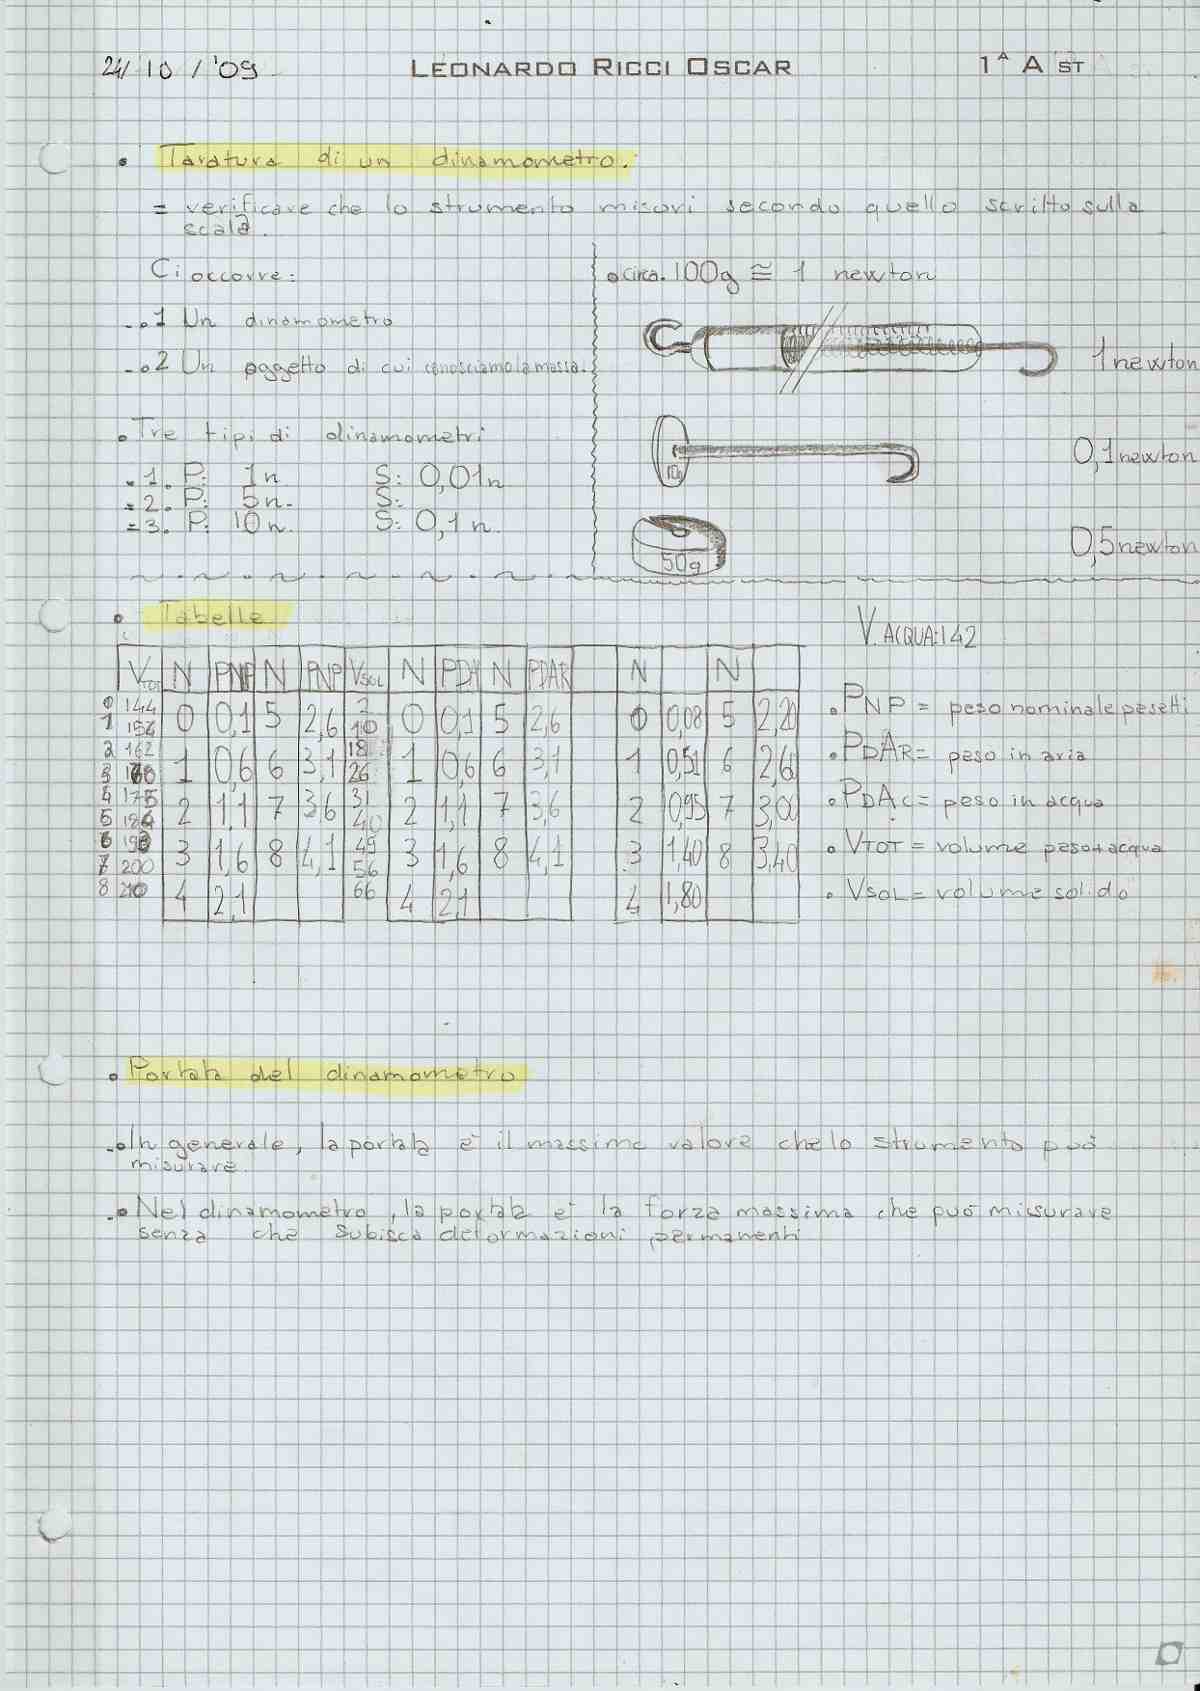 24/10/'09 LEONARDO RICCI OSCAR 1^A A ST
• Taratura di un dinamometro.
= verificare che lo strumento misuri secondo quello scritto sulla
scala.
Ci occorre:
-•1 Un dinamometro
-•2 Un oggetto di cui conosciamo la massa.
• Tre tipi di dinamometri
-1. P: 1n S: 0,01n
=2. P: 5n. S:
=3. P: 10n. S: 0,1n.
• Circa. 100g ≅ 1 newton
1 newton
10g 0,1 newton
50g 0,5 newton
• Tabelle
V. ACQUA: 142
VTOT N PNP N PNP VSOL N PDA N PDAR N N
0 144 0 0,1 5 2,6 2 0 0,1 5 2,6 0 0,08 5 2,20
1 10
2 162 1 0,6 6 3,1 18 1 0,6 6 3,1 1 0,51 6 2,60
3 26
4 175 2 1,1 7 3,6 31 2 1,1 7 3,6 2 0,95 7 3,00
5 40
6 3 1,6 8 4,1 49 3 1,6 8 4,1 3 1,40 8 3,40
7 200 56
8 210 4 2,1 66 4 2,1 4 1,80
• PNP = peso nominale pesetti
• PDAR = peso in aria
• PDAC = peso in acqua
• VTOT = volume peso+acqua
• VSOL = volume solido
• Portata del dinamometro
-• In generale, la portata è il massimo valore che lo strumento può
misurare.
-• Nel dinamometro, la portata è la forza massima che può misurare
senza che subisca deformazioni permanenti